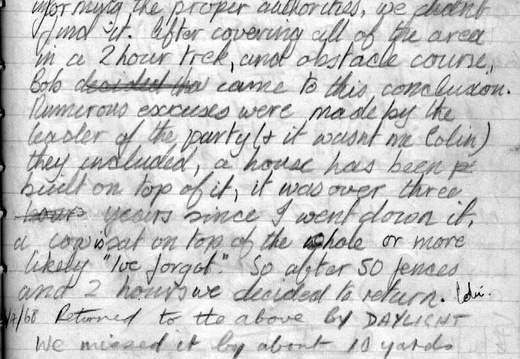 informing the proper authorities, we didnt
find it. After covering all of the area
in a 2 hour trek, and obstacle course,
Bob decided tha came to this conclusion.
Numerous excuses were made by the
leader of the party (& it wasnt me Colin)
they included, a house has been
built on top of it, it was over three
hours years since I went down it,
a cow is sat on top of the whole or more
likely "Ive forgot". So after 50 fences
and 2 hours we decided to return. Colin.
/68 Returned to the above BY DAYLIGHT
We missed it by about 10 yards